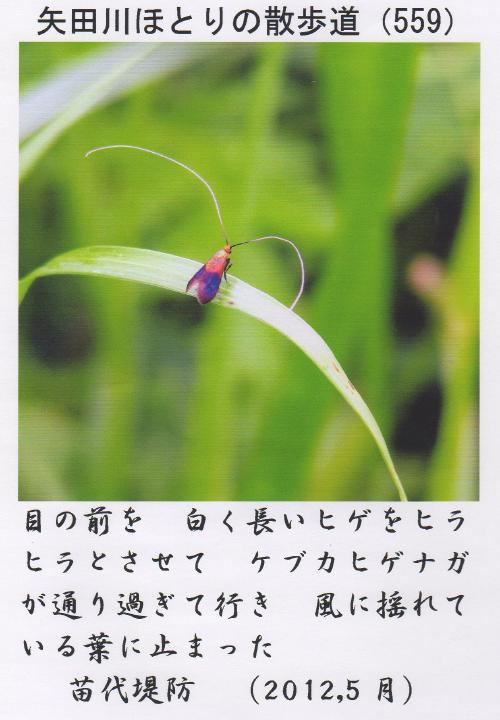 矢田川ほとりの散歩道（559）
目の前を　白く長いヒゲをヒラ
ヒラとさせて　ケブカヒゲナガ
が通り過ぎて行き　風に揺れて
いる葉に止まった
苗代堤防　（2012,5 月）